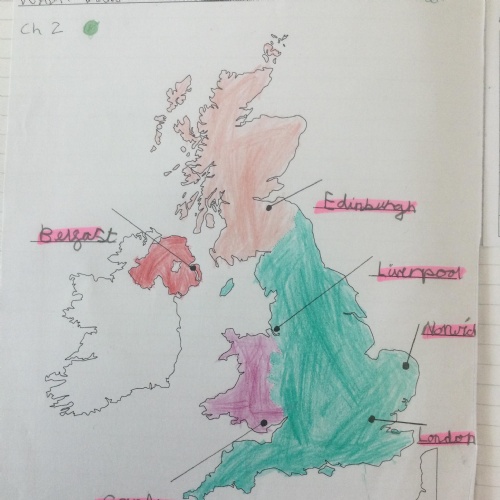 Ch 2
Edinburgh
Belfast
Liverpool
Norwic
London